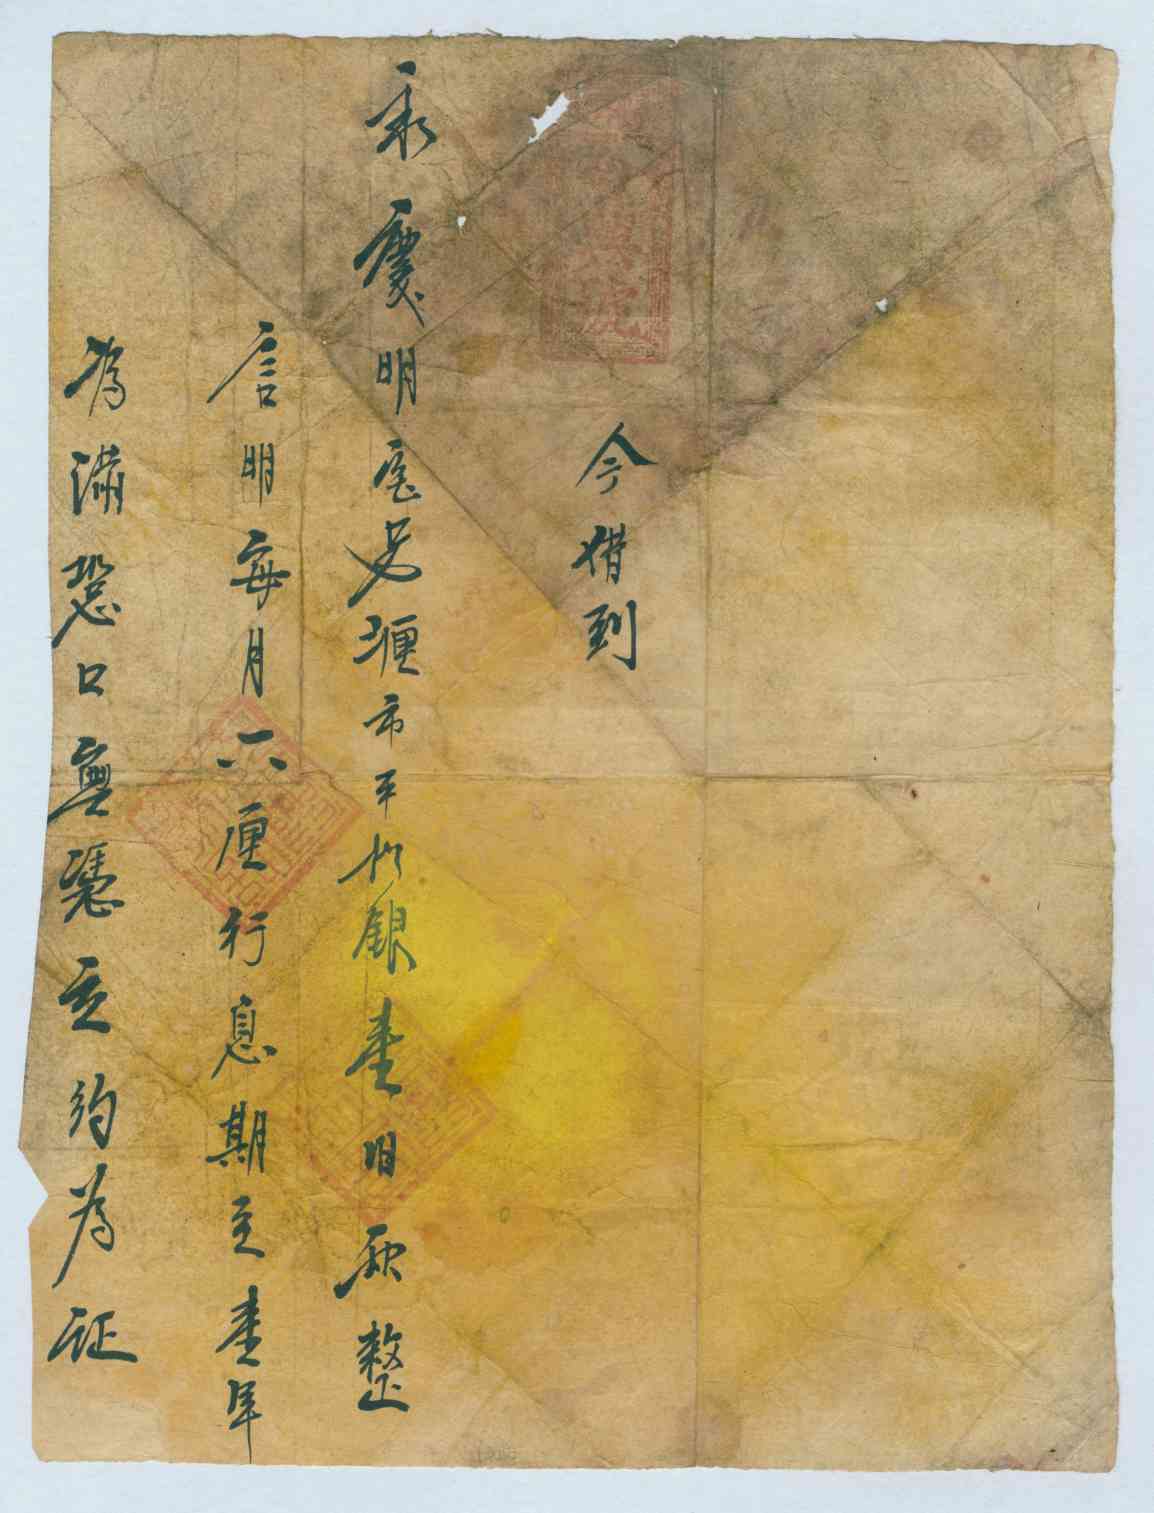 今借到
永慶明寶号堰市平松銀壹佰两整
言明每月六厘行息期至壹年
為滿恐口無憑立約為証